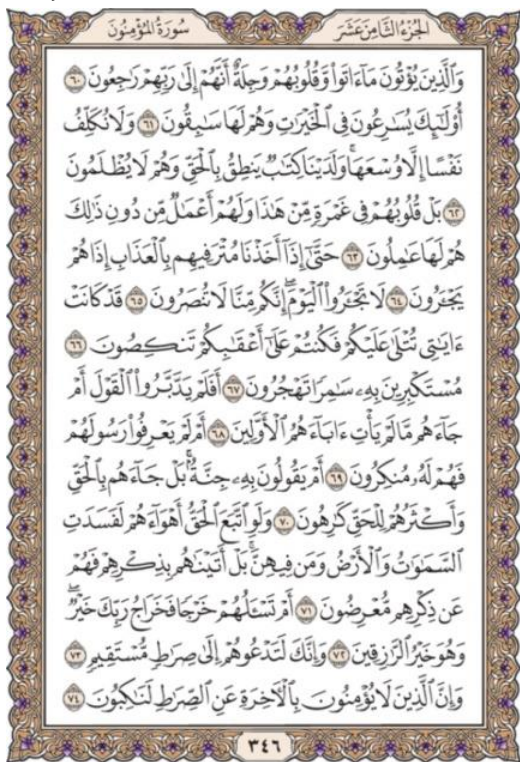 الجُزْءُ الثَّامِنَ عَشَرَ سُورَةُ المُؤْمِنُونَ
وَٱلَّذِينَ يُؤْتُونَ مَآ ءَاتَوا۟ وَّقُلُوبُهُمْ وَجِلَةٌ أَنَّهُمْ إِلَىٰ رَبِّهِمْ رَٰجِعُونَ ٦٠
أُو۟لَٰٓئِكَ يُسَٰرِعُونَ فِى ٱلْخَيْرَٰتِ وَهُمْ لَهَا سَٰبِقُونَ ٦١ وَلَا نُكَلِّفُ
نَفْسًا إِلَّا وُسْعَهَا ۖ وَلَدَيْنَا كِتَٰبٌ يَنطِقُ بِٱلْحَقِّ وَهُمْ لَا يُظْلَمُونَ
٦٢ بَلْ قُلُوبُهُمْ فِى غَمْرَةٍ مِّنْ هَٰذَا وَلَهُمْ أَعْمَٰلٌ مِّن دُونِ ذَٰلِكَ
هُمْ لَهَا عَٰمِلُونَ ٦٣ حَتَّىٰٓ إِذَآ أَخَذْنَا مُتْرَفِيهِم بِٱلْعَذَابِ إِذَا هُمْ
يَجْـَٔرُونَ ٦٤ لَا تَجْـَٔرُوا۟ ٱلْيَوْمَ ۖ إِنَّكُم مِّنَّا لَا تُنصَرُونَ ٦٥ قَدْ كَانَتْ
ءَايَٰتِى تُتْلَىٰ عَلَيْكُمْ فَكُنتُمْ عَلَىٰٓ أَعْقَٰبِكُمْ تَنكِصُونَ ٦٦
مُسْتَكْبِرِينَ بِهِۦ سَٰمِرًا تَهْجُرُونَ ٦٧ أَفَلَمْ يَدَّبَّرُوا۟ ٱلْقَوْلَ أَمْ
جَآءَهُم مَّا لَمْ يَأْتِ ءَابَآءَهُمُ ٱلْأَوَّلِينَ ٦٨ أَمْ لَمْ يَعْرِفُوا۟ رَسُولَهُمْ
فَهُمْ لَهُۥ مُنكِرُونَ ٦٩ أَمْ يَقُولُونَ بِهِۦ جِنَّةٌۢ ۚ بَلْ جَآءَهُم بِٱلْحَقِّ
وَأَكْثَرُهُمْ لِلْحَقِّ كَٰرِهُونَ ٧٠ وَلَوِ ٱتَّبَعَ ٱلْحَقُّ أَهْوَآءَهُمْ لَفَسَدَتِ
ٱلسَّمَٰوَٰتُ وَٱلْأَرْضُ وَمَن فِيهِنَّ ۚ بَلْ أَتَيْنَٰهُم بِذِكْرِهِمْ فَهُمْ
عَن ذِكْرِهِم مُّعْرِضُونَ ٧١ أَمْ تَسْـَٔلُهُمْ خَرْجًا فَخَرَاجُ رَبِّكَ خَيْرٌ ۖ
وَهُوَ خَيْرُ ٱلرَّٰزِقِينَ ٧٢ وَإِنَّكَ لَتَدْعُوهُمْ إِلَىٰ صِرَٰطٍ مُّسْتَقِيمٍ ٧٣
وَإِنَّ ٱلَّذِينَ لَا يُؤْمِنُونَ بِٱلْءَاخِرَةِ عَنِ ٱلصِّرَٰطِ لَنَٰكِبُونَ ٧٤
٣٤٦